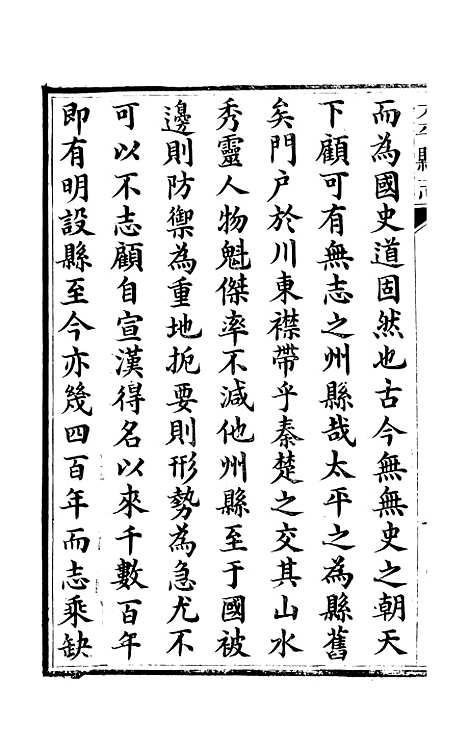 而為國史道固然也古今無無史之朝天
下顧可有無志之州縣哉太平之為縣舊
矣門户於川東襟帶乎秦楚之交其山水
秀靈人物魁傑率不減他州縣至于國被
邊則防禦為重地扼要則形勢為急尤不
可以不志顧自宣漢得名以來千數百年
即有明設縣至今亦幾四百年而志乘缺